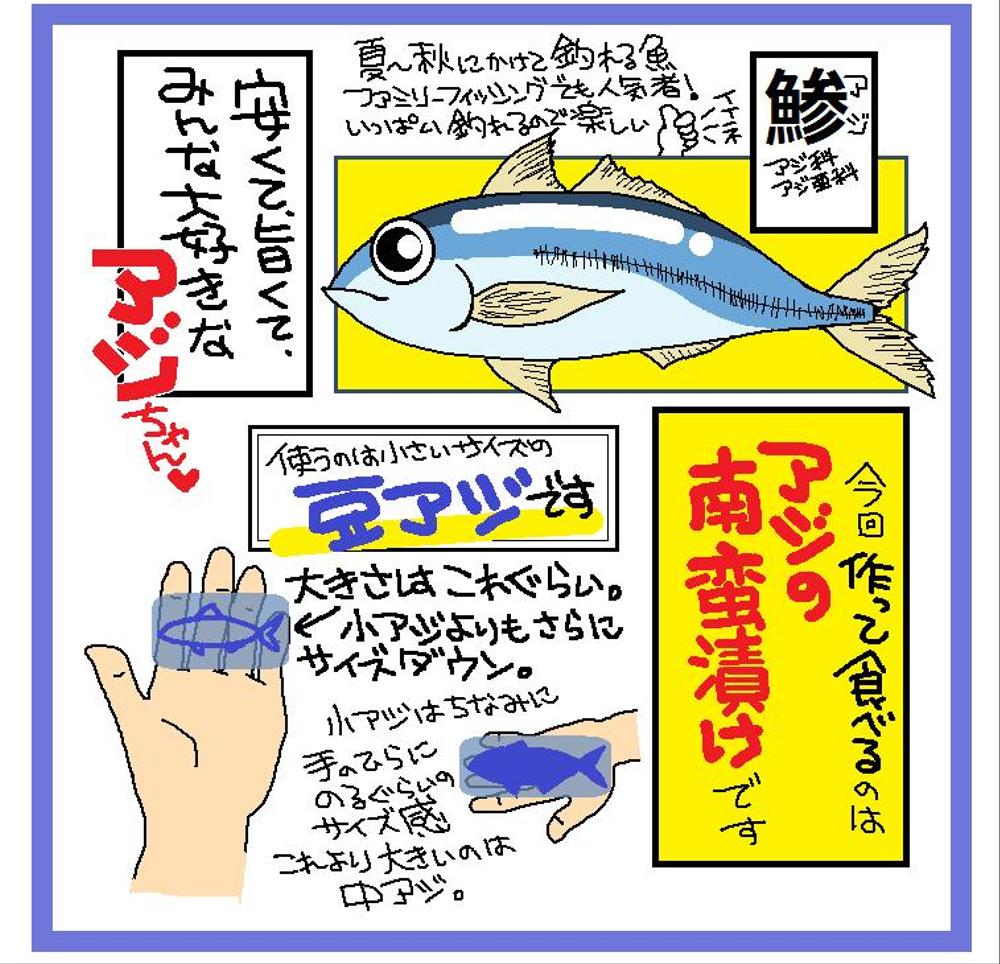 夏〜秋にかけて釣れる魚
ファミリーフィッシングでも人気者!
いっぱい釣れるので楽しい
イイネ
鯵
アジ
アジ科
アジ亜科
安くて、旨くて、
みんな大好きな
アジ
ちゃん♥
使うのは小さいサイズの
豆アジです
今回作って食べるのは
アジの
南蛮漬け
です
大きさはこれぐらい。
←小アジよりもさらに
サイズダウン。
小アジはちなみに
手のひらに
のるぐらいの
サイズ感
これより大きいのは
中アジ。